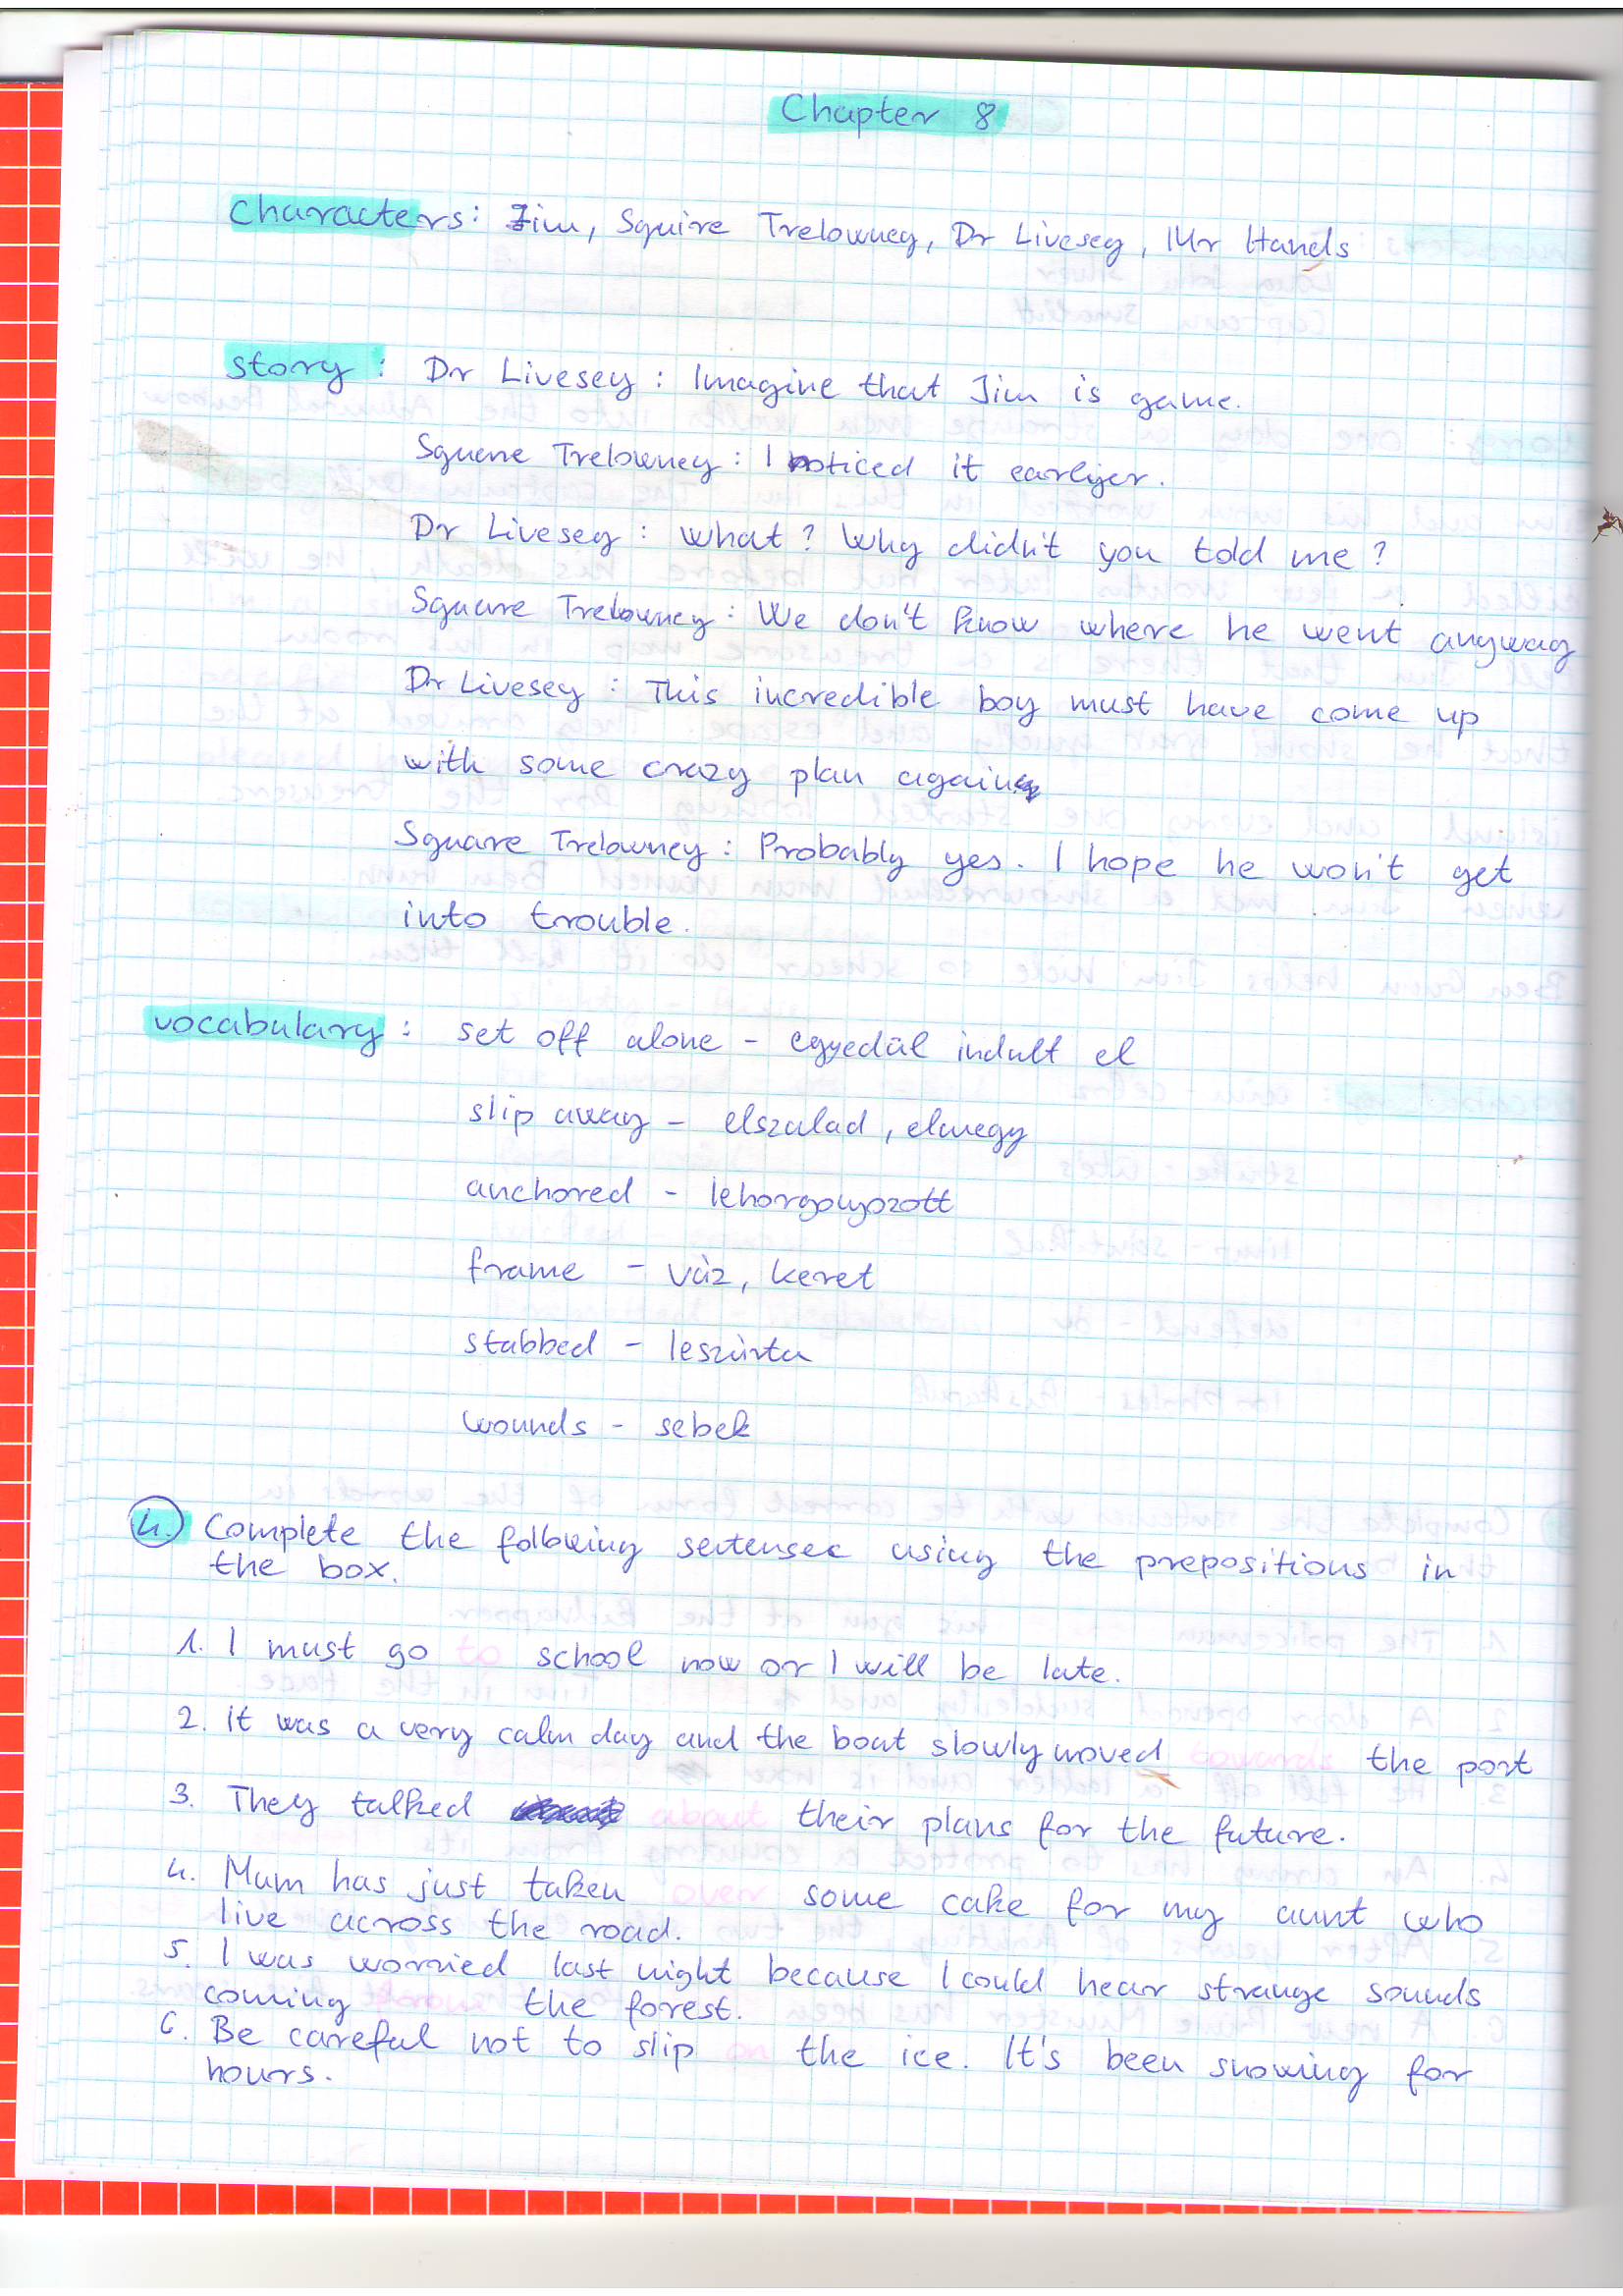 Chapter 8
Characters: Jim, Squire Trelowney, Dr Livesey, Mr Hands
story: Dr Livesey: Imagine that Jim is game.
Squene Trelowney: I noticed it earlyer.
Dr Livesey: What? Why didn't you told me?
Square Trelowney: We don't know where he went anyway
Dr Livesey: This incredible boy must have come up
with some crazy plan again
Square Trelowney: Probably yes. I hope he won't get
into trouble.
vocabulary: set off alone - egyedül indult el
slip away - elszalad, elmegy
anchored - lehorgonyozott
frame - váz, keret
stabbed - leszúrta
wounds - sebek
4. Complete the following sentensec using the prepositions in
the box.
1. I must go to school now or I will be late.
2. it was a very calm day and the boat slowly moved towards the port
3. They talked about their plans for the future.
4. Mum has just taken over some cake for my aunt who
live across the road.
5. I was worried last night because I could hear strange sounds
coming the forest.
6. Be careful not to slip on the ice. It's been snowing for
hours.